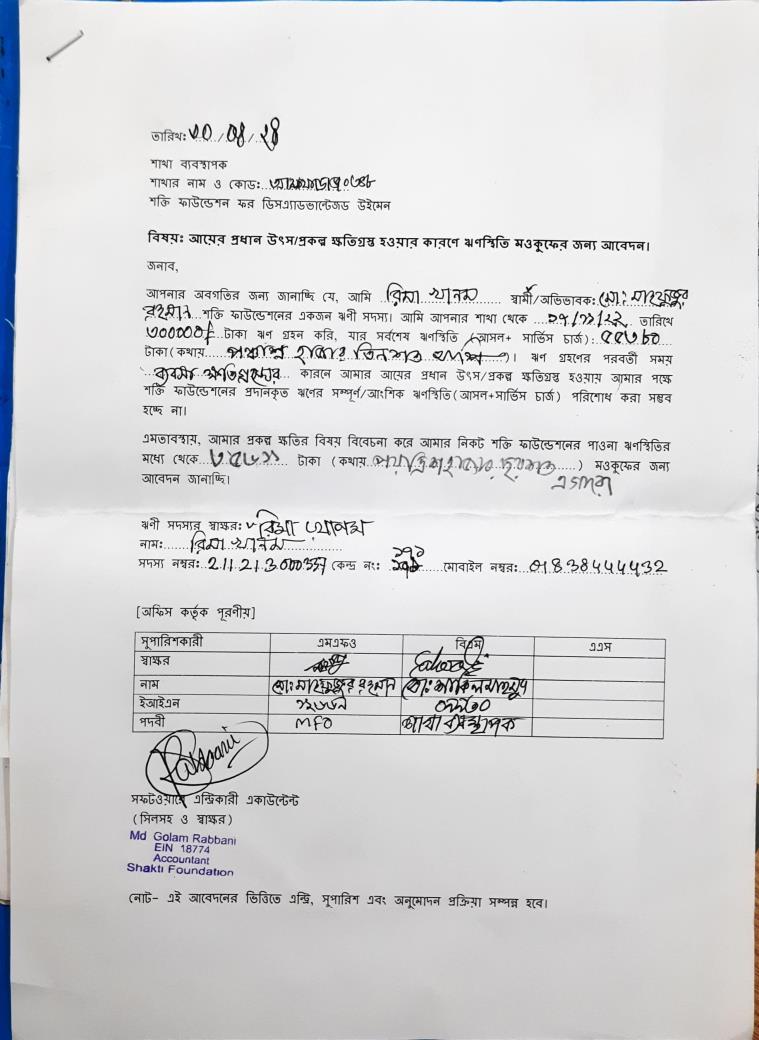 তারিখ: ২০/০৪/২৪
শাখা ব্যবস্থাপক
শাখার নাম ও কোড:
শক্তি ফাউন্ডেশন ফর ডিসএ্যাডভান্টেজড উইমেন
বিষয়: আয়ের প্রধান উৎস/প্রকল্প ক্ষতিগ্রস্থ হওয়ার কারণে ঋণস্থিতি মওকুফের জন্য আবেদন।
জনাব,
আপনার অবগতির জন্য জানাচ্ছি যে, আমি রিমা খানম স্বামী/অভিভাবক: মো: মাহফুজুর
রহমান শক্তি ফাউন্ডেশনের একজন ঋণী সদস্য। আমি আপনার শাখা থেকে তারিখে
৩০০০০০/- টাকা ঋণ গ্রহন করি, যার সর্বশেষ ঋণস্থিতি (আসল+ সার্ভিস চার্জ):
টাকা (কথায় হাজার তিনশত )। ঋণ গ্রহণের পরবর্তী সময়
ব্যবসা ক্ষতিগ্রস্থের কারনে আমার আয়ের প্রধান উৎস/প্রকল্প ক্ষতিগ্রস্থ হওয়ায় আমার পক্ষে
শক্তি ফাউন্ডেশনের প্রদানকৃত ঋণের সম্পূর্ণ/আংশিক ঋণস্থিতি (আসল+সার্ভিস চার্জ) পরিশোধ করা সম্ভব
হচ্ছে না।
এমতাবস্থায়, আমার প্রকল্প ক্ষতির বিষয় বিবেচনা করে আমার নিকট শক্তি ফাউন্ডেশনের পাওনা ঋণস্থিতির
মধ্যে থেকে ৩৫৬১১ টাকা (কথায় পয়ত্রিশ হাজার ছয়শত ) মওকুফের জন্য
এগার
আবেদন জানাচ্ছি।
ঋণী সদস্যর স্বাক্ষর: রিমা খানম
নাম: রিমা খানম
সদস্য নম্বর: কেন্দ্র নং: ১৭১ মোবাইল নম্বর: 01838444432
[অফিস কর্তৃক পূরণীয়]
সুপারিশকারী এমএফও বিএম এএস
স্বাক্ষর
নাম মো: মাহফুজুর রহমান মো: শাকিল মাহমুদ
ইআইএন
পদবী MFO শাখা ব্যবস্থাপক
Rabbani
সফটওয়্যারে এন্ট্রিকারী একাউন্টেন্ট
(সিলসহ ও স্বাক্ষর)
Md Golam Rabbani
EIN 18774
Accountant
Shakti Foundation
নোট- এই আবেদনের ভিত্তিতে এন্ট্রি, সুপারিশ এবং অনুমোদন প্রক্রিয়া সম্পন্ন হবে।